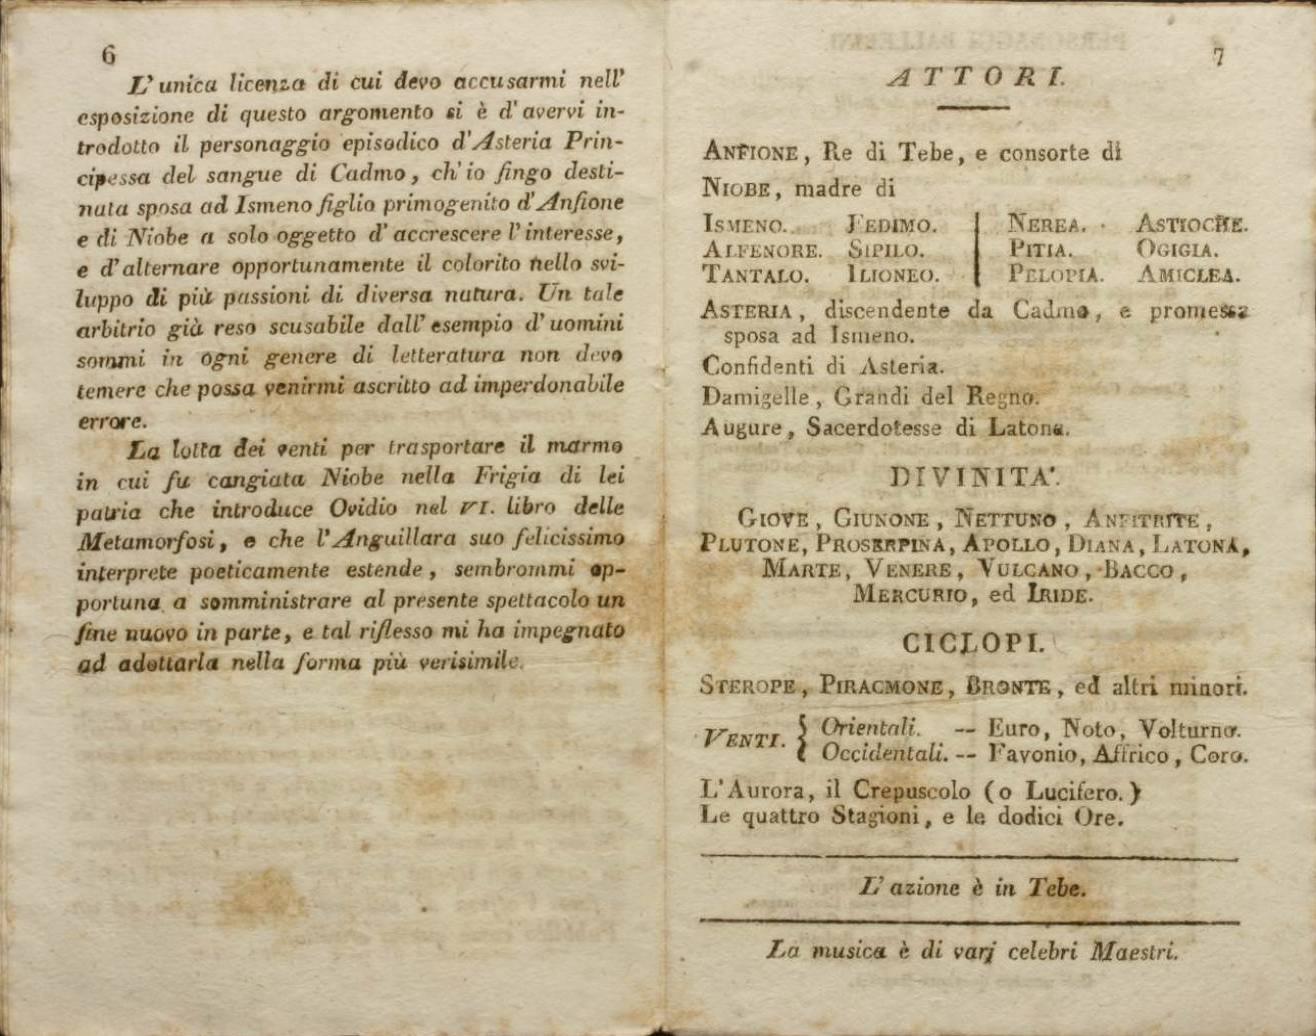 6
L' unica licenza di cui devo accusarmi nell'
esposizione di questo argomento si è d' avervi in-
trodotto il personaggio episodico d'Asteria Prin-
cipessa del sangue di Cadmo, ch' io fingo desti-
nata sposa ad Ismeno figlio primogenito d'Anfione
e di Niobe a solo oggetto d' accrescere l' interesse,
e d'alternare opportunamente il colorito nello svi-
luppo di più passioni di diversa natura. Un tale
arbitrio già reso scusabile dall' esempio d' uomini
sommi in ogni genere di letteratura non devo
temere che possa venirmi ascritto ad imperdonabile
errore.
La lotta dei venti per trasportare il marmo
in cui fu cangiata Niobe nella Frigia di lei
patria che introduce Ovidio nel VI. libro delle
Metamorfosi, e che l'Anguillara suo felicissimo
interprete poeticamente estende, sembrommi op-
portuna a somministrare al presente spettacolo un
fine nuovo in parte, e tal riflesso mi ha impegnato
ad adottarla nella forma più verisimile.
7
ATTORI.
ANFIONE, Re di Tebe, e consorte di
NIOBE, madre di
ISMENO. FEDIMO. NEREA. ASTIOCHE.
ALFENORE. SIPILO. PITIA. OGIGIA.
TANTALO. ILIONEO. PELOPIA. AMICLEA.
ASTERIA, discendente da Cadmo, e promessa
sposa ad Ismeno.
Confidenti di Asteria.
Damigelle, Grandi del Regno.
Augure, Sacerdotesse di Latona.
DIVINITA'.
GIOVE, GIUNONE, NETTUNO, ANFITRITE,
PLUTONE, PROSERPINA, APOLLO, DIANA, LATONA,
MARTE, VENERE, VULCANO, BACCO,
MERCURIO, ed IRIDE.
CICLOPI.
STEROPE, PIRACMONE, BRONTE, ed altri minori.
VENTI. { Orientali. -- Euro, Noto, Volturno.
Occidentali. -- Favonio, Affrico, Coro.
L'Aurora, il Crepuscolo (o Lucifero.)
Le quattro Stagioni, e le dodici Ore.
L' azione è in Tebe.
La musica è di varj celebri Maestri.